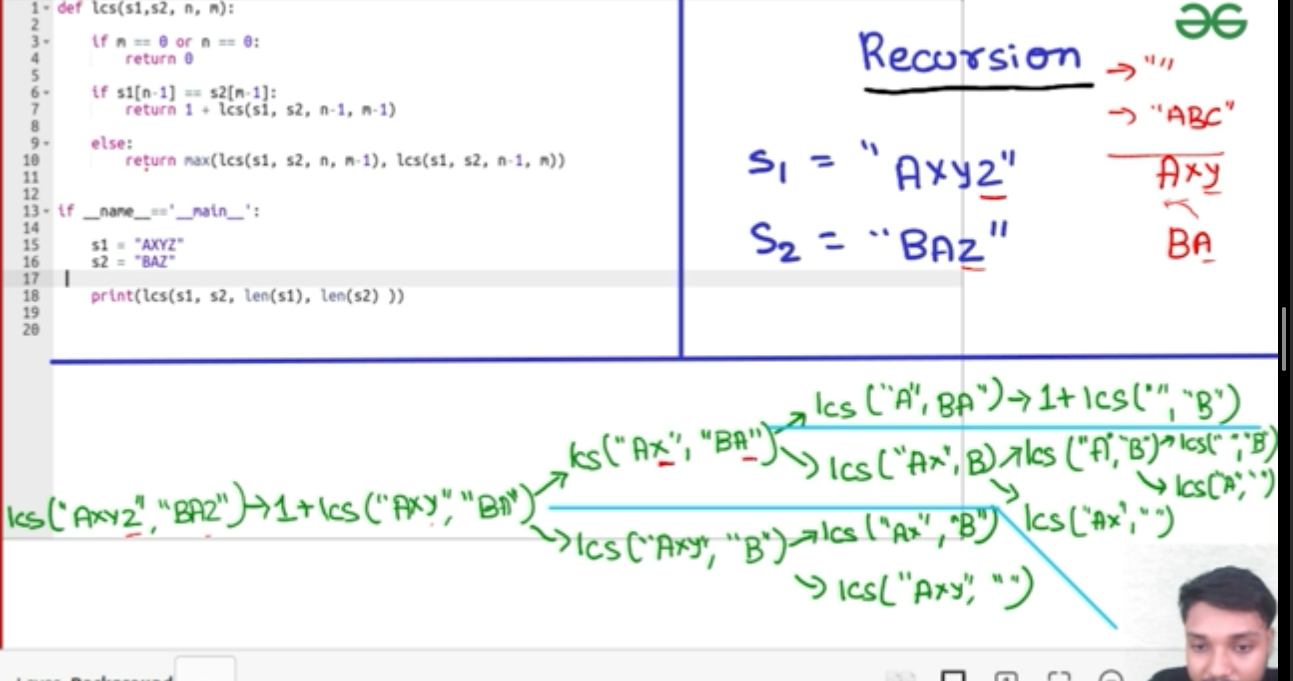 1 def lcs(s1,s2, n, m):
2
3 if m == 0 or n == 0:
4 return 0
5
6 if s1[n-1] == s2[m-1]:
7 return 1 + lcs(s1, s2, n-1, m-1)
8
9 else:
10 return max(lcs(s1, s2, n, m-1), lcs(s1, s2, n-1, m))
11
12
13 if __name__=='__main__':
14
15 s1 = "AXYZ"
16 s2 = "BAZ"
17
18 print(lcs(s1, s2, len(s1), len(s2) ))
19
20
Recursion
→ ""
→ "ABC"
S1 = "AXYZ"
S2 = "BAZ"
AXY
BA
lcs("A", BA") → 1+lcs("", "B")
lcs("AX", "BA")
lcs("AX", B) lcs("A", "B") → lcs("", "B)
lcs("A", "")
lcs("AXYZ", "BAZ") → 1+lcs("AXY", "BA")
lcs("AX", "")
lcs("AXY", "B") → lcs("AX", "B")
lcs("AXY", "")